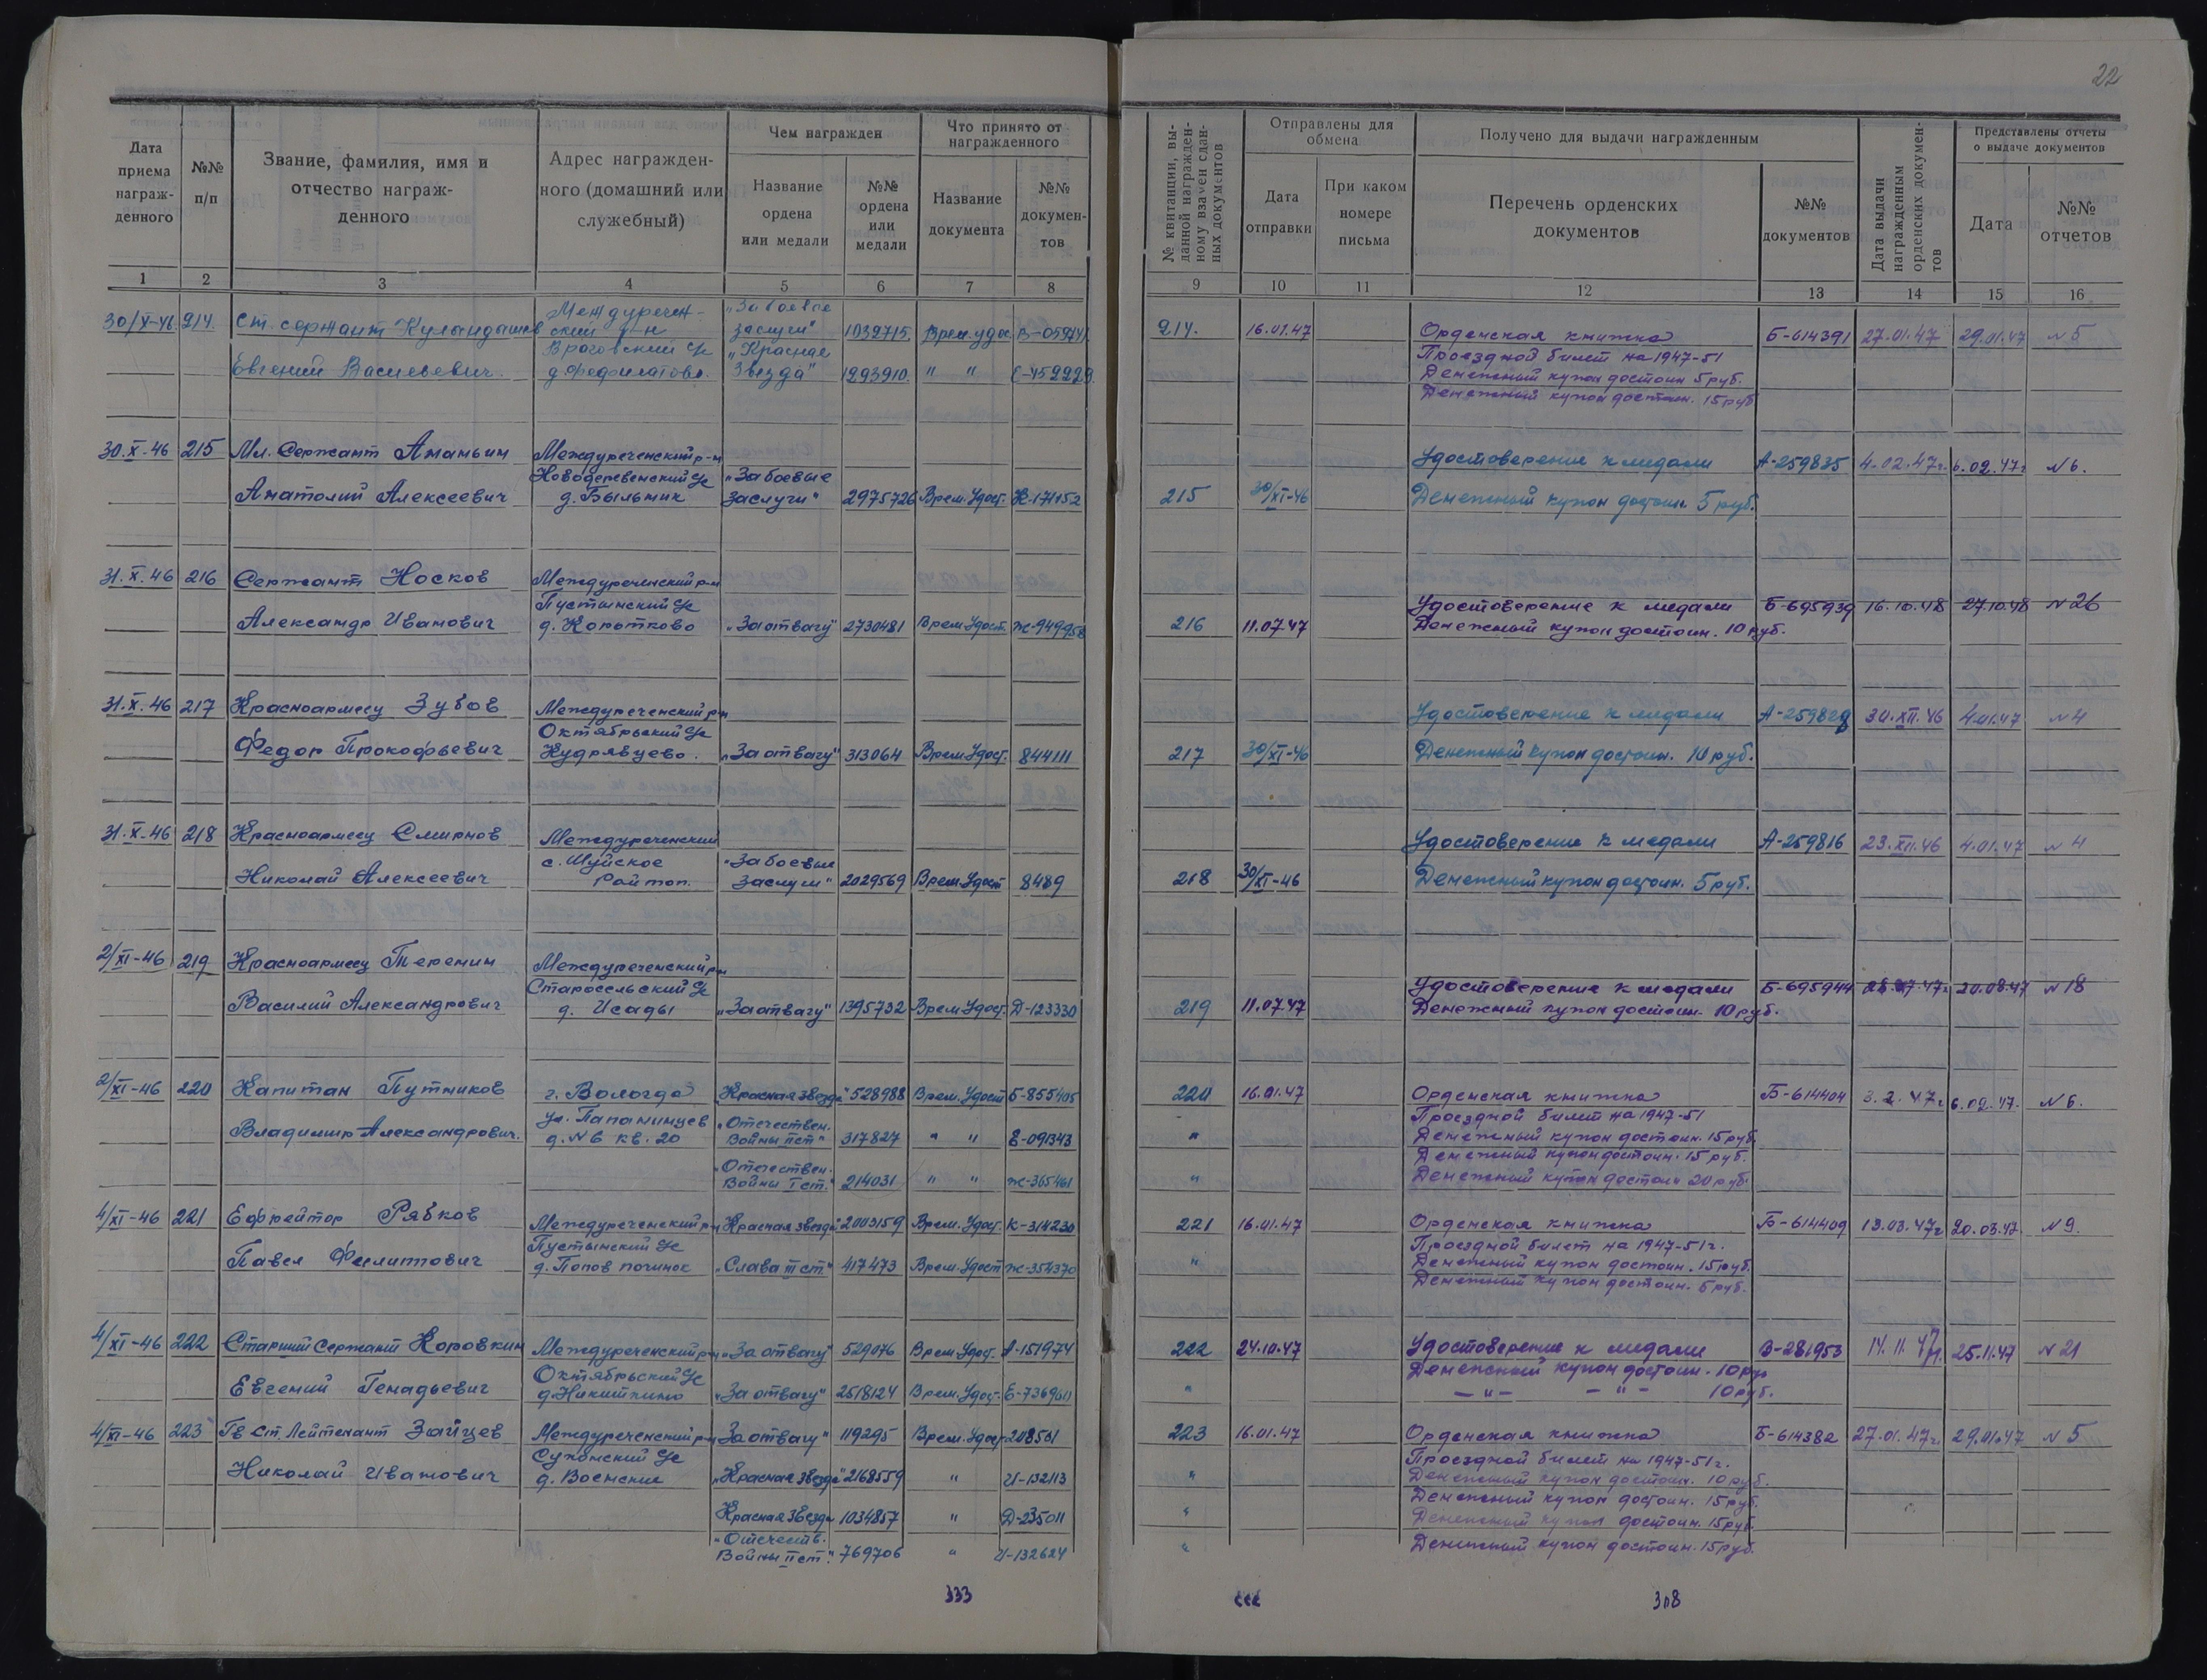 22
Дата приема награж-денного
№№ п/п
Звание, фамилия, имя и отчество награж-денного
Адрес награжден-ного (домашний или служебный)
Чем награжден
Название ордена или медали
№№ ордена или медали
Что принято от награжденного
Название документа
№№ докумен-тов
№ квитанции, вы-данной награжден-ному взамен сдан-ных документов
Отправлены для обмена
Дата отправки
При каком номере письма
Получено для выдачи награжденным
Перечень орденских документов
№№ документов
Дата выдачи награжденным орденских докумен-тов
Представлены отчеты о выдаче документов
Дата
№№ отчетов
1 2 3 4 5 6 7 8 9 10 11 12 13 14 15 16
Междуречен- „За боевые
30/X-46. 214. Ст. сержант ский р-н заслуги" 1032715. Врем. удос. 214. 16.01.47 Орденская книжка Б-614391 27.01.47 29.01.47 №5
„Красная Проездной билет на 1947-51
Евгений Васильевич. звезда" 1293910. " " Е-459229. Денежный купон достоин 5 руб.
Денежный купон достоин. 15 руб
30.X-46 215 Мл. Сержант Ананьин Междуреченский р-н Удостоверение к медали А-259835 4.02.47г. 6.02.47г №6.
Новодеревенский с/с „За боевые
Анатолий Алексеевич д. Быльник заслуги" 2975726 Врем. Удост. 215 30/XI-46 Денежный купон достоин. 5 руб.
31.X.46 216 Сержант Носков Междуреченский р-н
Пустынский с/с Удостоверение к медали Б-695939 16.10.48 27.10.48 №26
Александр Иванович д. Коротково „За отвагу" 2730481 Врем. Удост. Ж-949958 216 11.07.47 Денежный купон достоин. 10 руб.
31.X.46 217 Красноармеец Зубов Междуреченский р-н Удостоверение к медали А-259829 30.XII.46 4.01.47 №4
Октябрьский с/с
Федор Прокофьевич Кудрявцево. „За отвагу" 313064 Врем. Удост. 844111 217 30/XI-46 Денежный купон достоин. 10 руб.
31.X-46 218 Красноармеец Смирнов Междуреченский Удостоверение к медали А-259816 23.XII.46 4.01.47 №4
с. Шуйское „За боевые
Николай Алексеевич Райтоп. заслуги" 2029569 Врем. Удост 8489 218 30/XI-46 Денежный купон достоин. 5 руб.
2/XI-46 219 Красноармеец Теренин Междуреченский р-н
Старосельский с/с Удостоверение к медали Б-695944 20.08.47 №18
Василий Александрович д. Исады „За отвагу" 1395732 Врем. Удост. Д-123330 219 11.07.47 Денежный купон достоин. 10 руб.
2/XI-46 220 Капитан Путников г. Вологда „Красная звезда" 528988 Врем. Удост Б-855405 220 16.01.47 Орденская книжка Б-614404 3.2.47г 6.02.47. №6.
Ул. Папанинцев „Отечествен. Проездной билет на 1947-51
Владимир Александрович. д. №6 кв. 20 Войны II ст" 317827 " " Е-091343 " Денежный купон достоин. 15 руб.
„Отечествен. Денежный купон достоин. 15 руб.
Войны I ст." 214031 " " Ж-365461 " Денежный купон достоин 20 руб.
4/XI-46 221 Ефрейтор Рябков Междуреченский р-н „Красная звезда" 2003159 Врем. Удост. К-314230 221 16.01.47 Орденская книжка Б-614409 13.03.47г 20.03.47. №9.
Пустынский с/с Проездной билет на 1947-51г.
Павел Филиппович д. Попов починок „Слава III ст." 417473 Врем. Удост Ж-354370 " Денежный купон достоин. 15 руб.
Денежный купон достоин. 5 руб.
4/XI-46 222 Старший Сержант Коровкин Междуреченский р-н „За отвагу" 529076 Врем. Удост. А-151974 222 24.10.47 Удостоверение к медали В-281953 14.11.47г. 25.11.47 №21
Октябрьский с/с Денежный купон достоин. 10 руб
Евгений Генадьевич д. Никиткино „За отвагу" 2518124 Врем. Удост. " — " — — " — 10 руб.
4/XI-46 223 Гв Ст Лейтенант Зайцев Междуреченский р-н „За отвагу" 119295 Врем. Удост 208561 223 16.01.47 Орденская книжка Б-614382 27.01.47г. 29.01.47 №5
Сухонский с/с Проездной билет на 1947-51г.
Николай Иванович „Красная звезда" 2168559 " И-132113 " Денежный купон достоин. 10 руб.
Денежный купон достоин. 15 руб.
Красная звезда 1034857 " Д-235011 " Денежный купон достоин. 15 руб.
„Отечеств.
Войны II ст." 769706 " И-132624 " Денежный купон достоин. 15 руб.
333
308